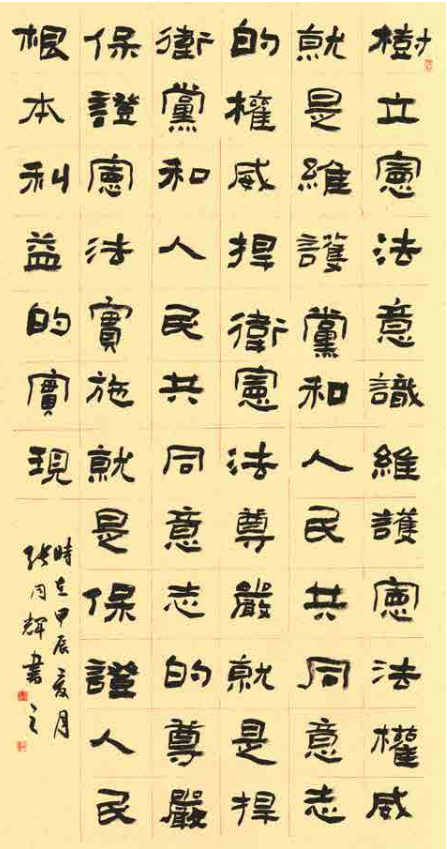 樹立憲法意識維護憲法權威
就是維護黨和人民共同意志
的權威捍衛憲法尊嚴就是捍
衛黨和人民共同意志的尊嚴
保證憲法實施就是保證人民
根本利益的實現
時在甲辰之夏月
張輝書之